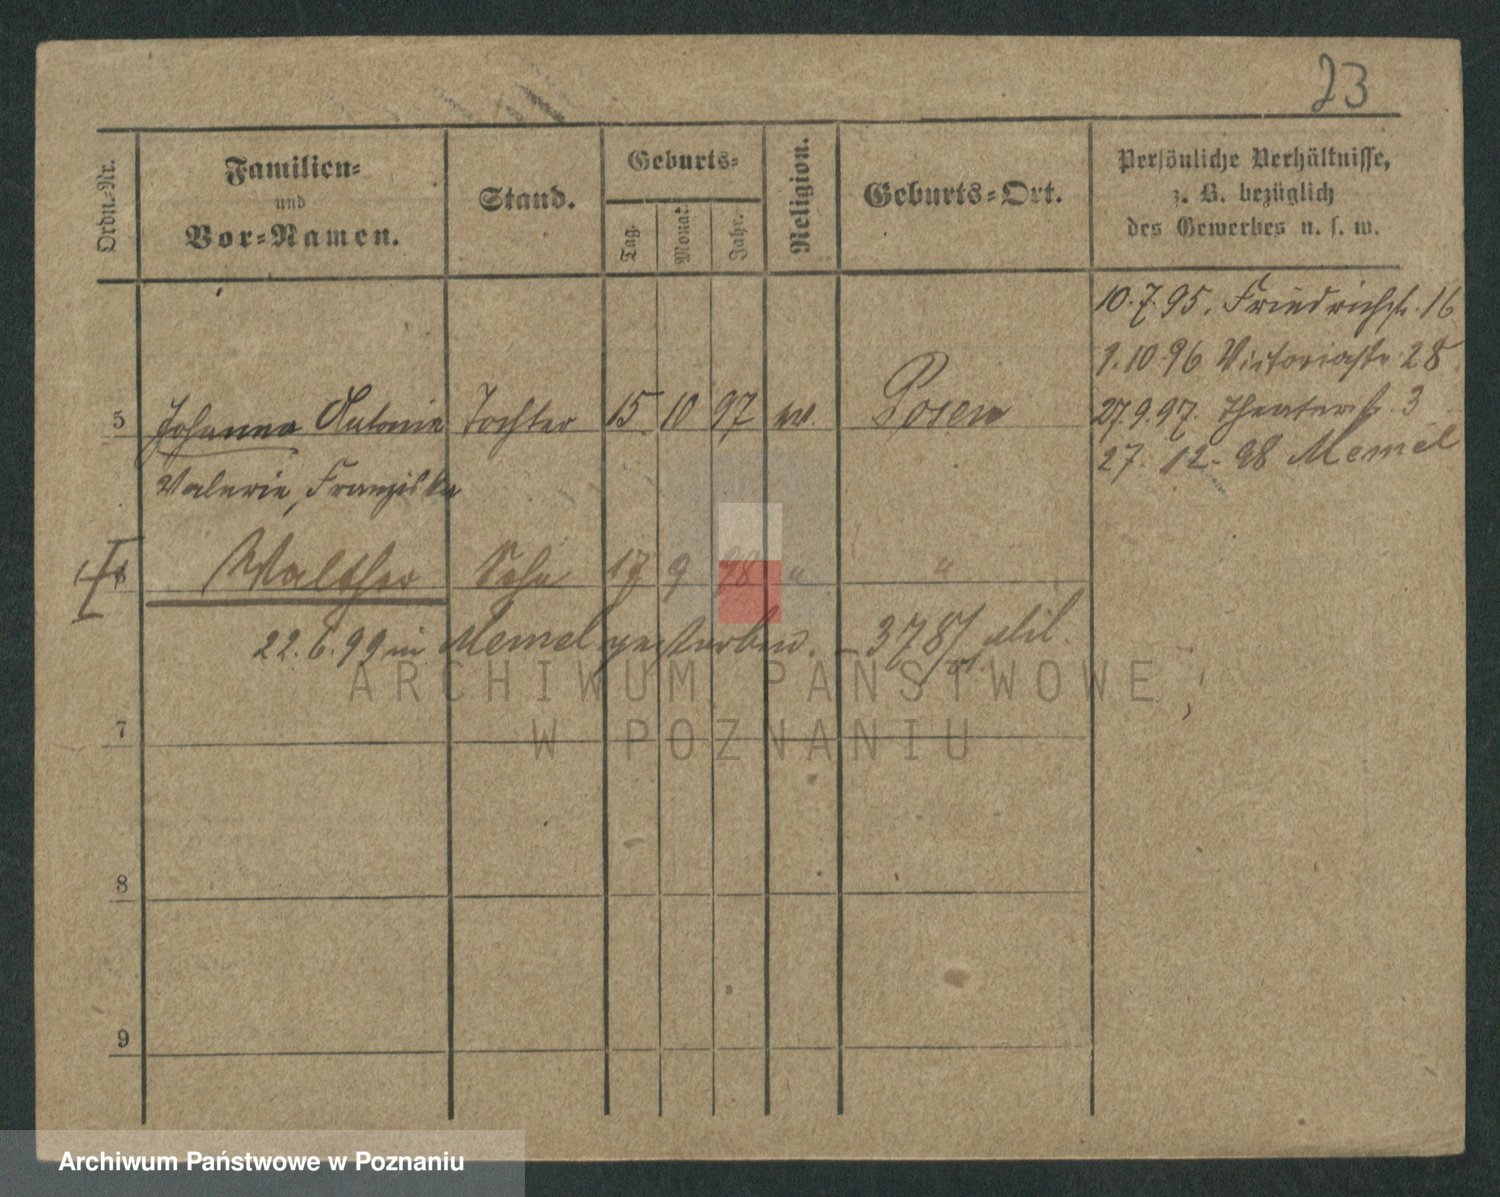 23
Ordn.-Nr.
Familien-
und
Vor-Namen.
Stand.
Geburts-
Tag.
Monat.
Jahr.
Religion.
Geburts-Ort.
Persönliche Verhältnisse,
z. B. bezüglich
des Gewerbes u. s. w.
10.7.95. Friedrichstr. 16
1.10.96 Victoriastr. 28.
27.9.97. Theaterstr. 3
27. 12. 98 Memel
5 Johanna Antonie Tochter 15 10 97 Posen
Valerie, Franziska
6 Walther Sohn 17 9 98 " "
22. 6. 99 in Memel gestorben. – 378/
7
8
9
ARCHIWUM PAŃSTWOWE
W POZNANIU
Archiwum Państwowe w Poznaniu